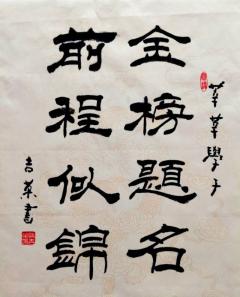 莘莘學子
金榜題名
前程似錦
吉革書